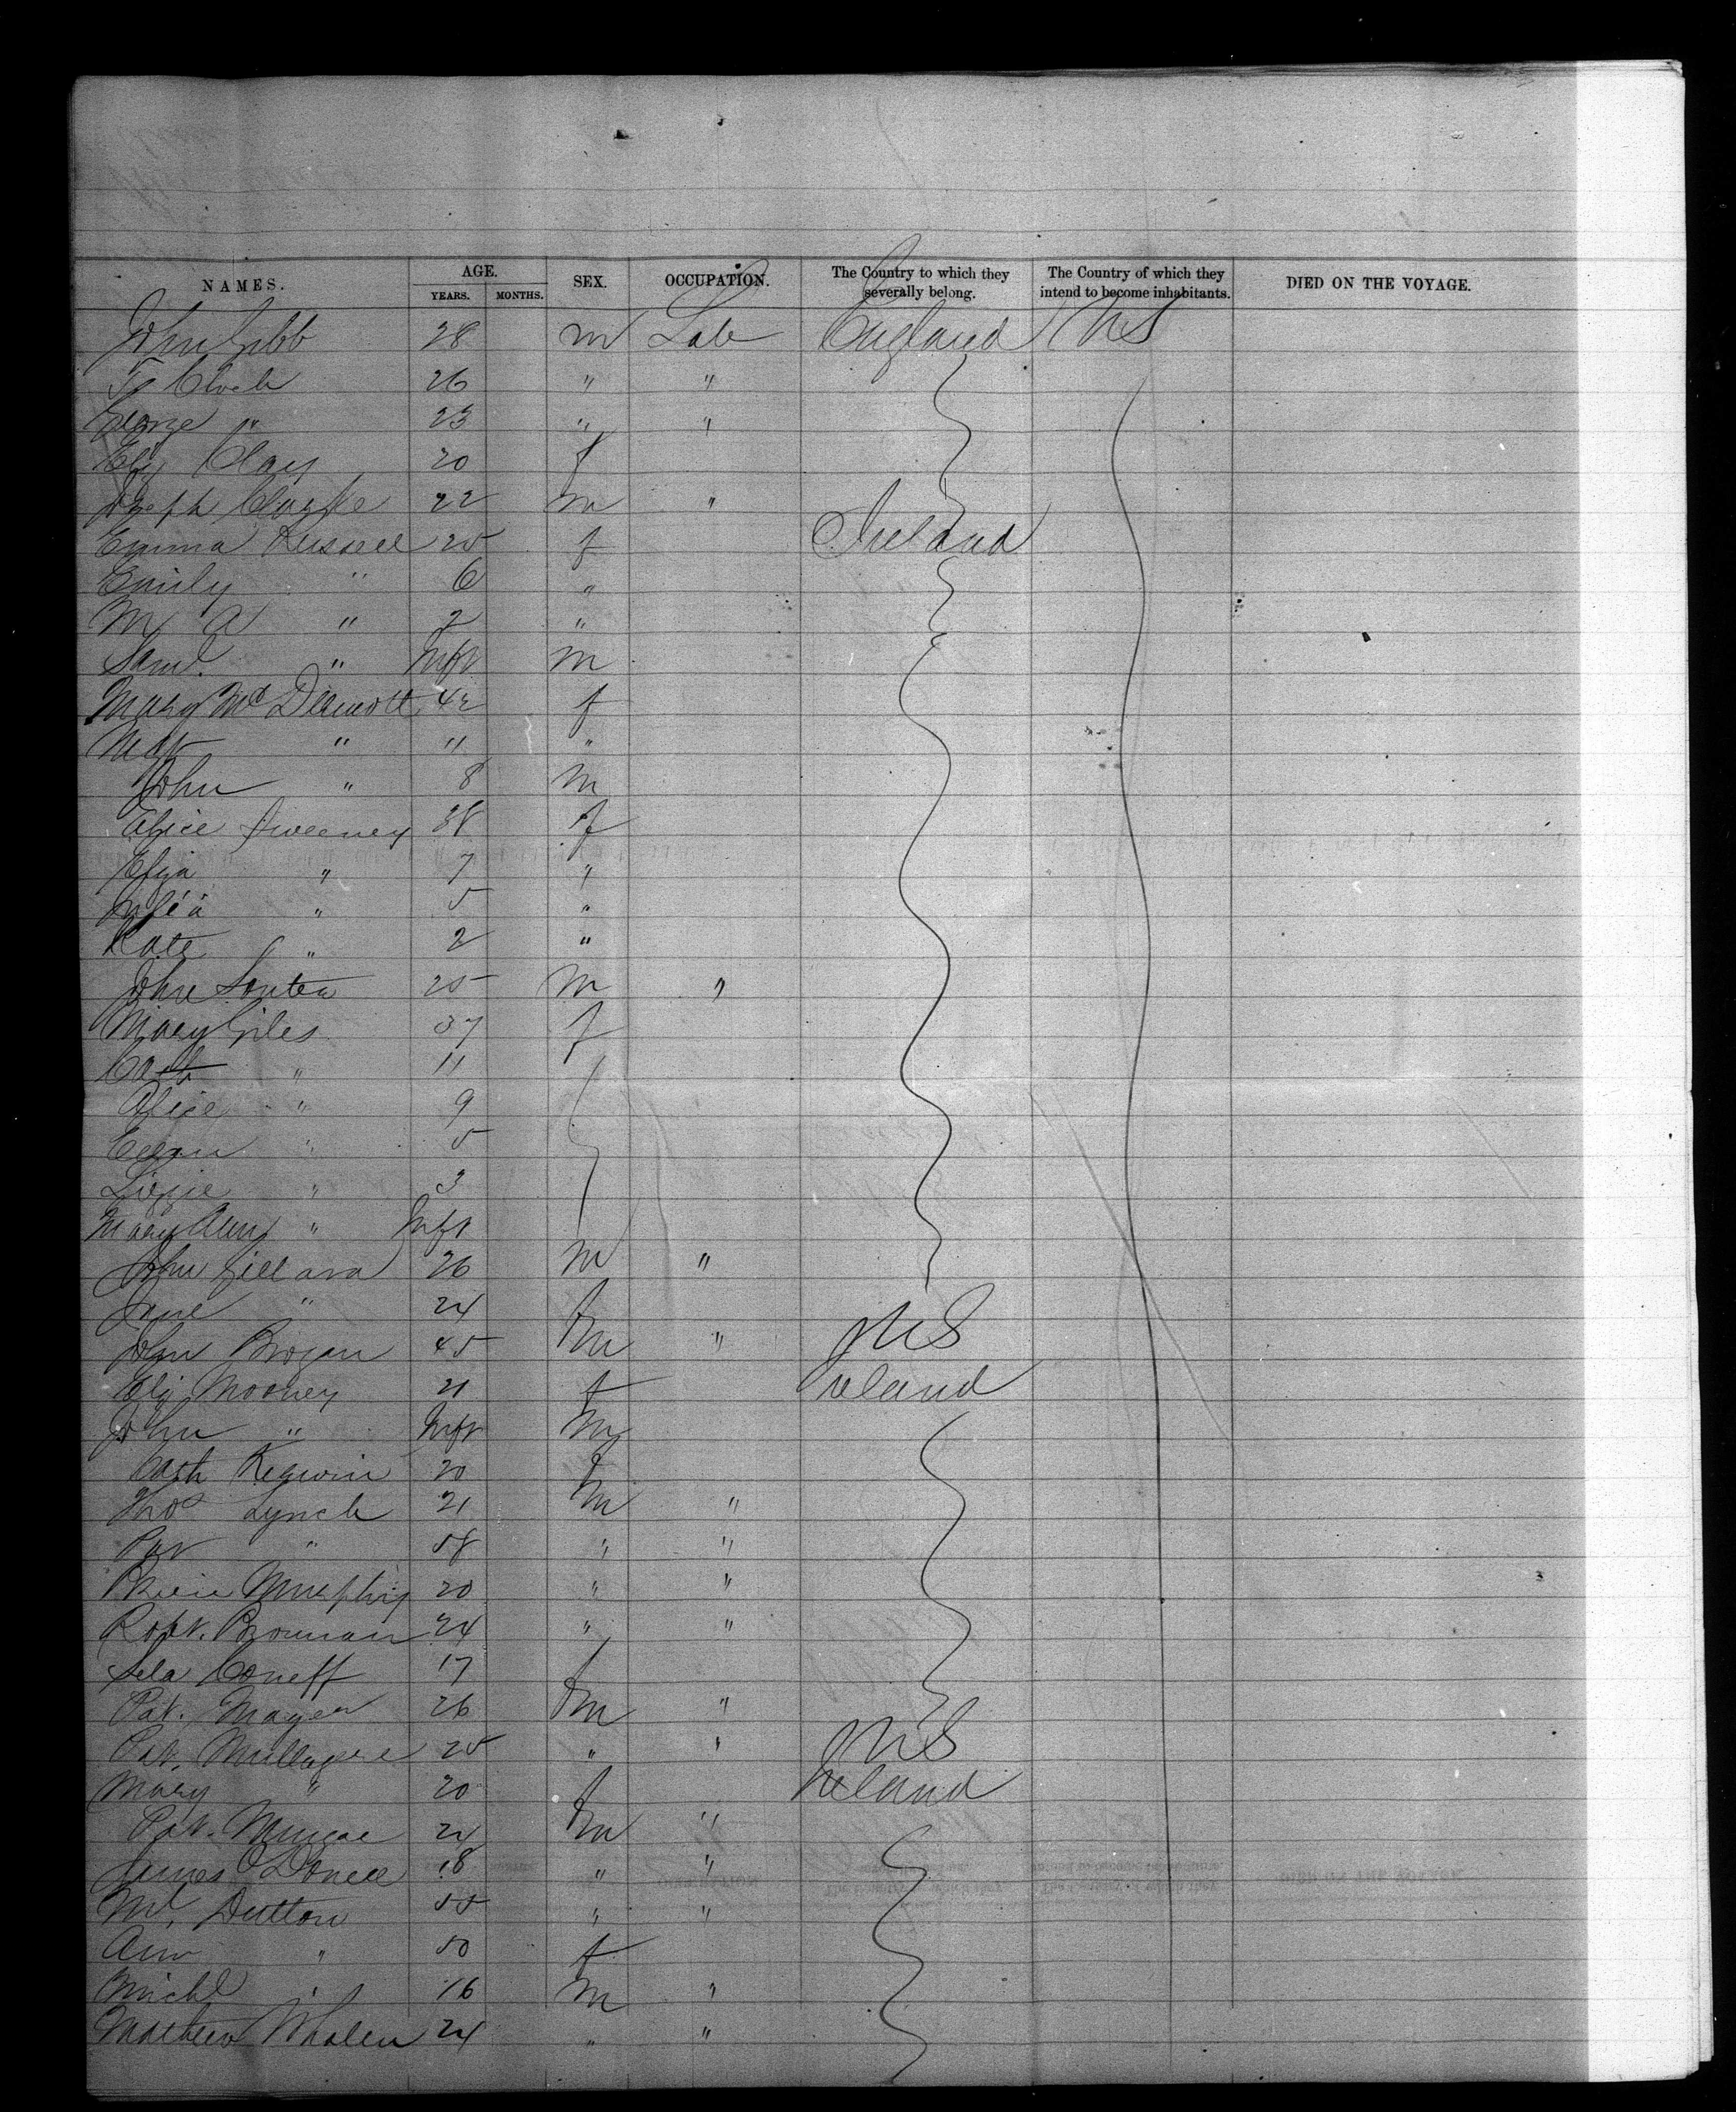 NAMES. AGE. YEARS. MONTHS. SEX. OCCUPATION. The Country to which they severally belong. The Country of which they intend to become inhabitants. DIED ON THE VOYAGE.
John Gibb 28 m Lab England US
26 " "
George " 23 " "
Eliz Clay 20 f
Joseph 22 m "
Emma Russell 25 f Ireland
Emily " 6 "
M A " 2 "
Saml " Inft m
Mary McDermott 42 f
" 11 "
John " 8 m
Alice Sweeney 38 f
Eliza " 7 "
Julia " 5 "
Kate " 2 "
John 25 m "
Mary Giles 37 f
Cath " 11
Alice " 9
Ellen " 5
Lizzie " 3
Mary Ann " Inft
John 26 m "
Jane " 24 f
John Brogan 45 m " US
Eliz Mooney 21 f Ireland
John " Inft m
Cath 20 f
Thos Lynch 21 m "
Pat " 58 " "
Murphy 20 " "
Robt. 24 " "
17 f
Pat. 26 m "
Pat. 25 " " US
Mary " 20 f Ireland
Pat. 24 m "
James O'Donell 18 " "
Ml. Dutton 55 " "
Ann " 50 f
Michl " 16 m "
Mathew Whalen 24 " "